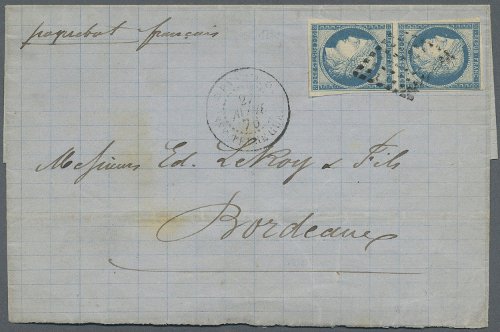 paquebot français
Messieurs Ed. LeRoy & Fils
Bordeaux